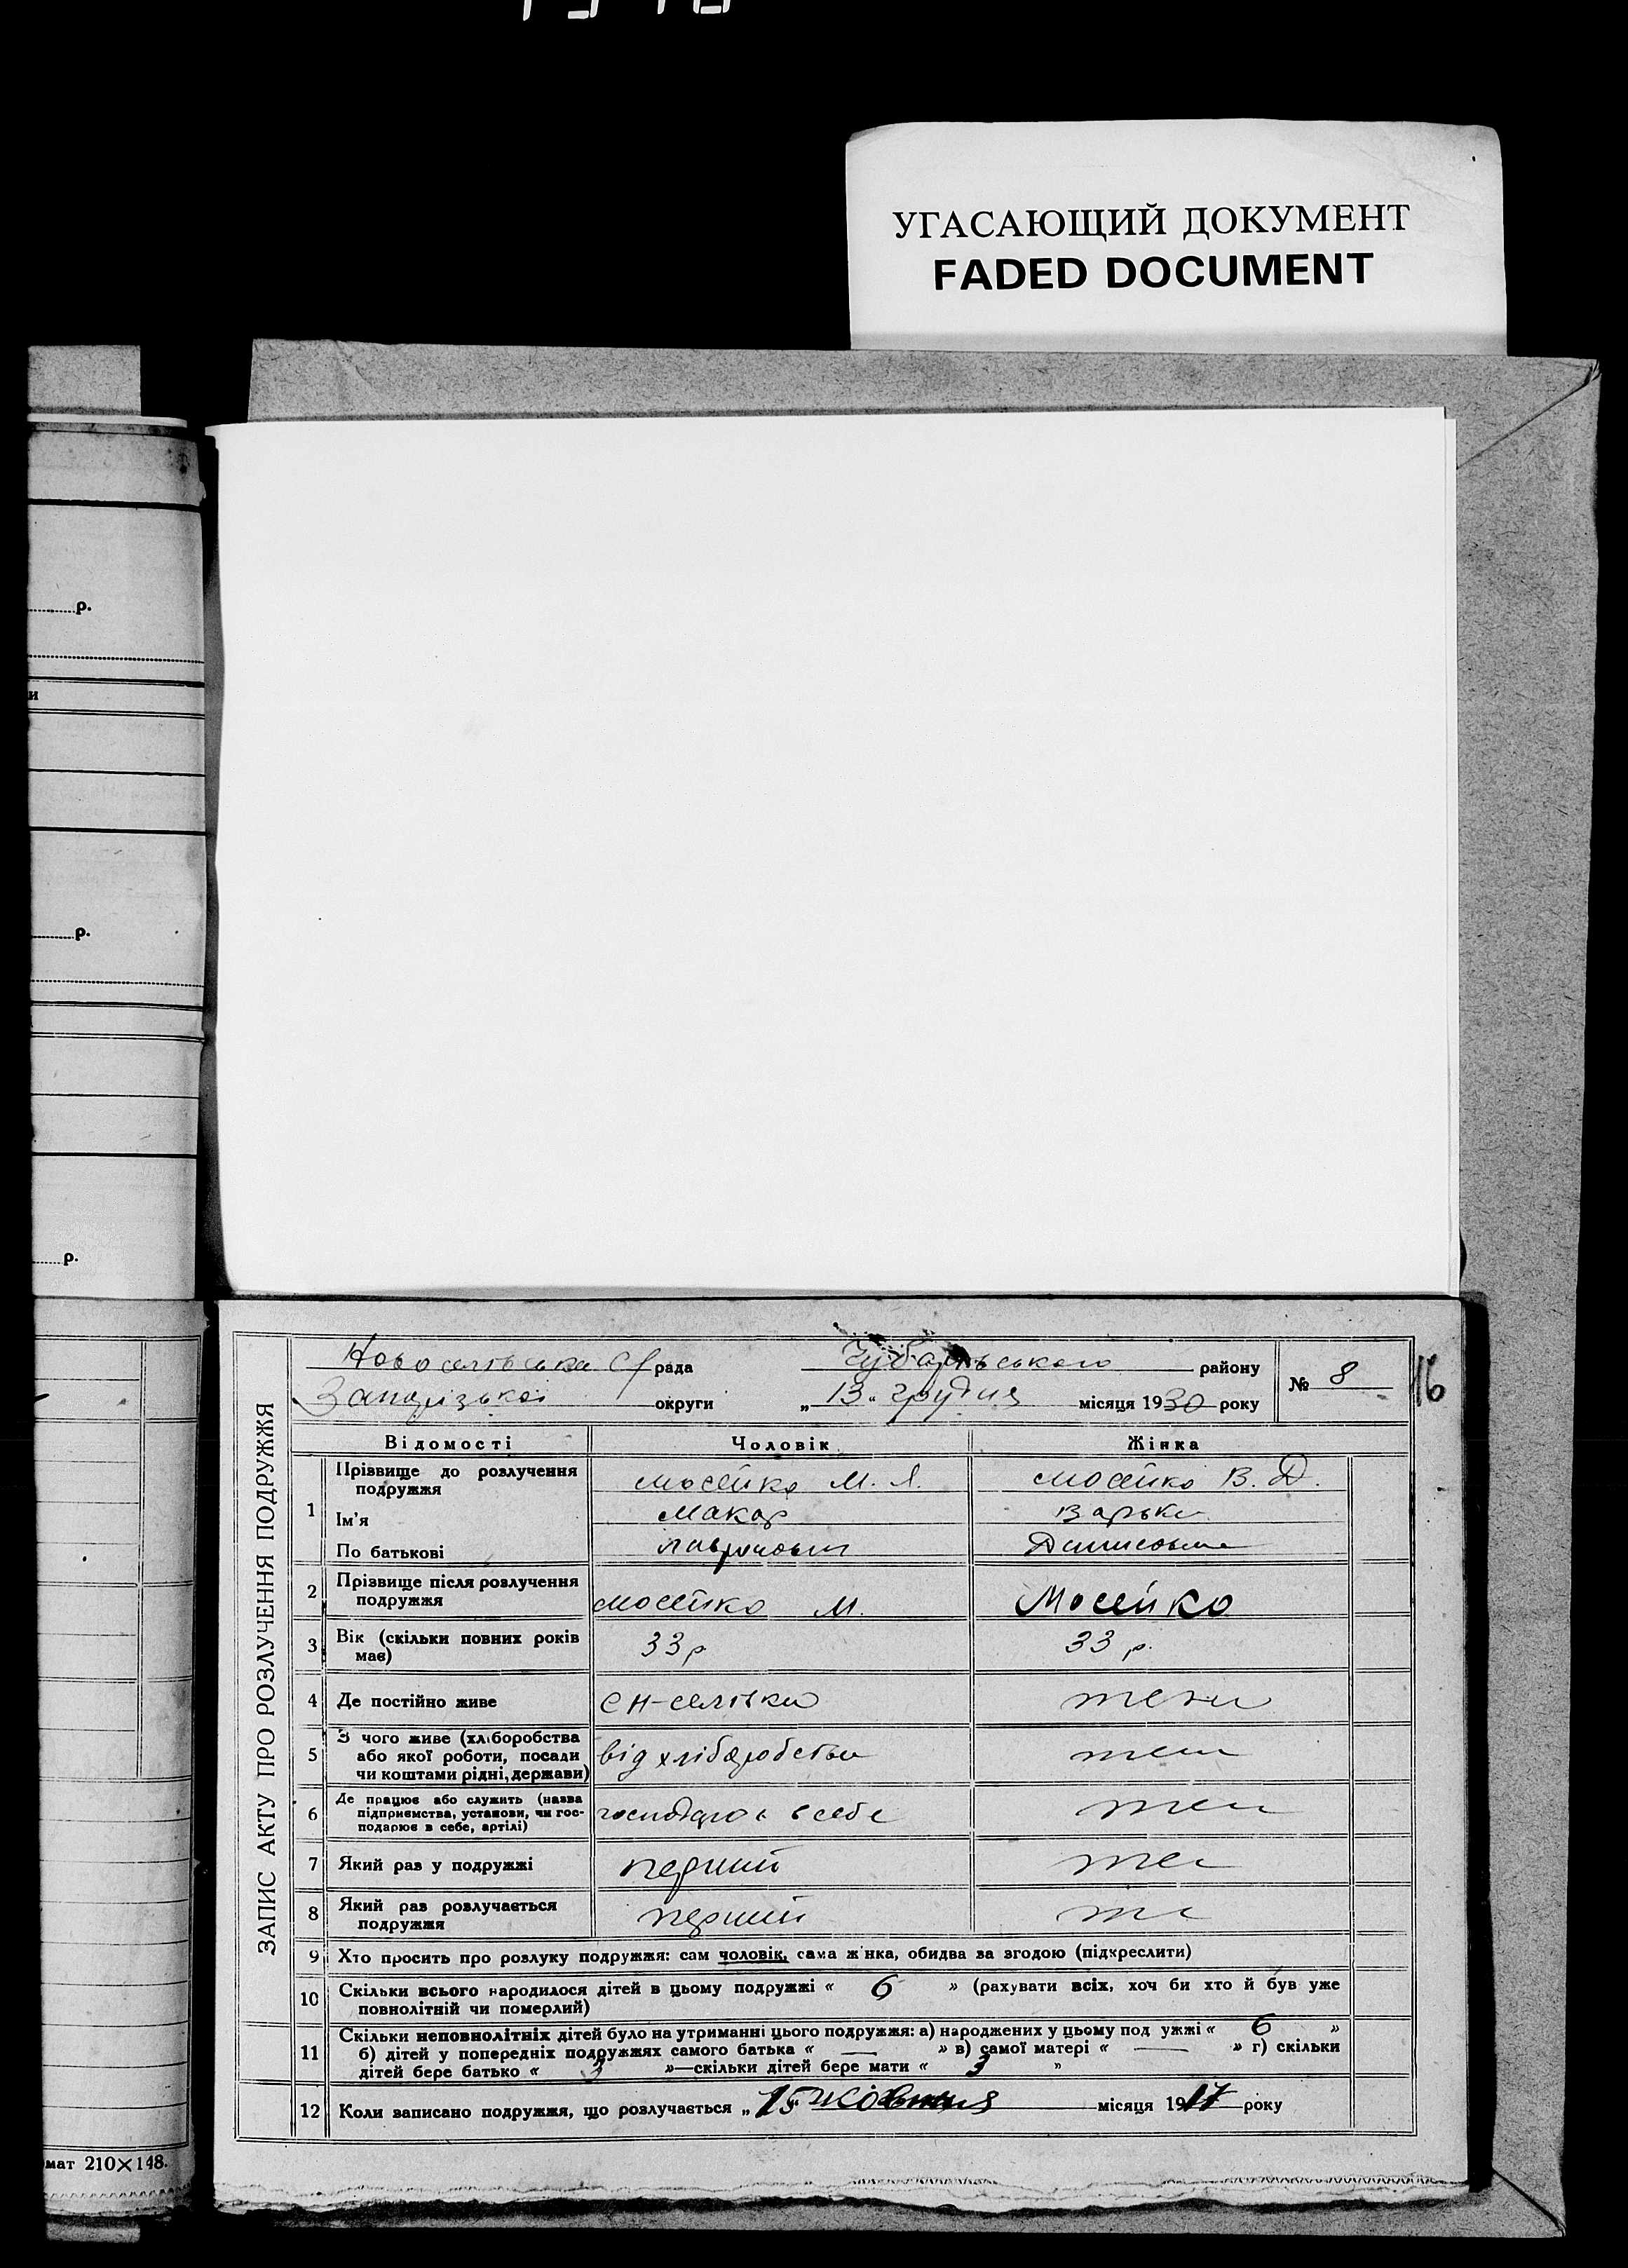 УГАСАЮЩИЙ ДОКУМЕНТ
FADED DOCUMENT
р.
и
р.
р.
мат 210×148.
16
ЗАПИС АКТУ ПРО РОЗЛУЧЕННЯ ПОДРУЖЖЯ
Новоселівська С/рада Чубарівського району № 8
Запорізької округи „13“ грудня місяця 1930 року
Відомості Чоловік Жінка
1 Прізвище до розлучення подружжя Мосейко М. Л. Мосейко В. Д.
Ім'я Макар Варька
По батькові Денисовна
2 Прізвище після розлучення подружжя Мосейко М. Мосейко
3 Вік (скільки повних років має) 33 р 33 р.
4 Де постійно живе
5 З чого живе (хліборобства або якої роботи, посади чи коштами рідні, держави) від хліборобства
6 Де працює або служить (назва підприємства, установи, чи господарює в себе, артілі) в себе
7 Який раз у подружжі перший
8 Який раз розлучається подружжя перший
9 Хто просить про розлуку подружжя: сам чоловік, сама жінка, обидва за згодою (підкреслити)
10 Скільки всього народилося дітей в цьому подружжі « 6 » (рахувати всіх, хоч би хто й був уже
повнолітній чи померлий)
11 Скільки неповнолітніх дітей було на утриманні цього подружжя: а) народжених у цьому под ужжі « 6 »
б) дітей у попередніх подружжях самого батька « — » в) самої матері « — » г) скільки
дітей бере батько « 3 »—скільки дітей бере мати « 3 »
12 Коли записано подружжя, що розлучається „15“ жовтня місяця 1917 року